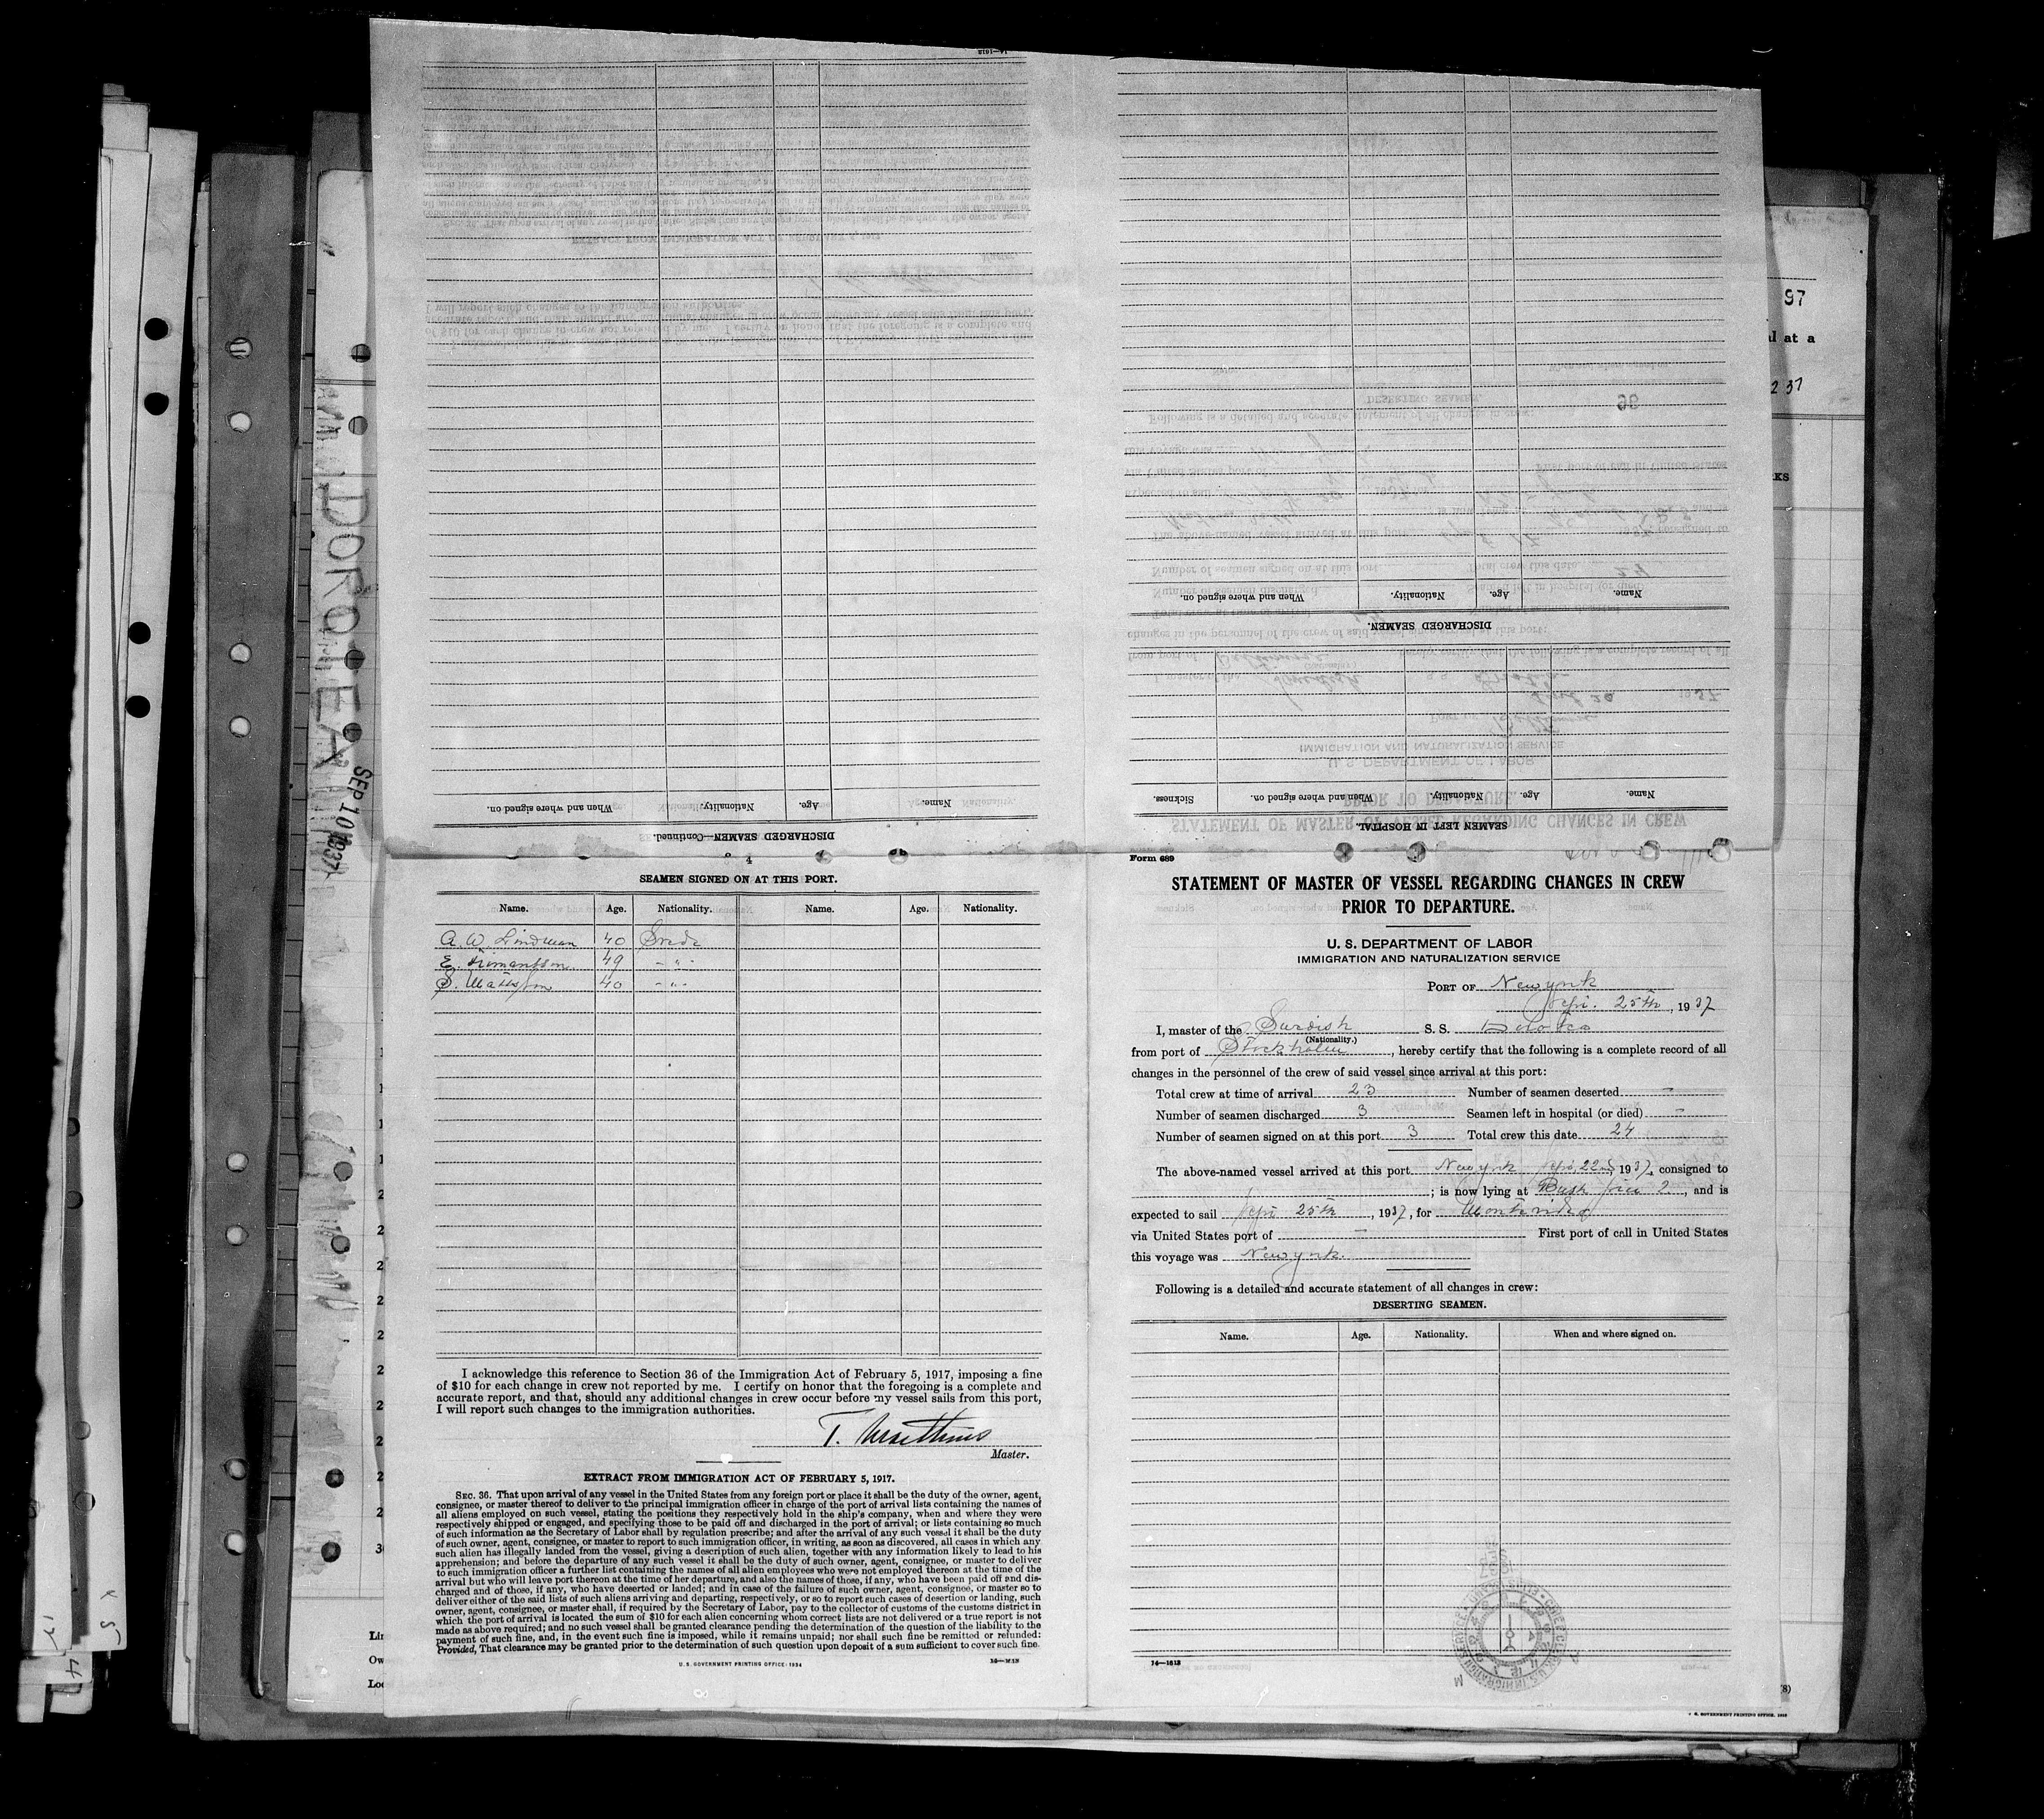 DISCHARGED SEAMEN.
Name. Age. Nationality. When and where signed on.
SEAMEN LEFT IN HOSPITAL.
Name. Age. Nationality. When and where signed on. Sickness.
DISCHARGED SEAMEN—Continued.
Name. Age. Nationality. When and where signed on.
97
al at a
2 37
KS
DOROTEA
SEP 10 1937
4
SEAMEN SIGNED ON AT THIS PORT.
Name. Age. Nationality. Name. Age. Nationality.
A. W. Lindman 40 Swede
E. 49 - " -
S. Mattsson 40 - " -
I acknowledge this reference to Section 36 of the Immigration Act of February 5, 1917, imposing a fine
of $10 for each change in crew not reported by me. I certify on honor that the foregoing is a complete and
accurate report, and that, should any additional changes in crew occur before my vessel sails from this port,
I will report such changes to the immigration authorities.
T.
Master.
EXTRACT FROM IMMIGRATION ACT OF FEBRUARY 5, 1917.
SEC. 36. That upon arrival of any vessel in the United States from any foreign port or place it shall be the duty of the owner, agent,
consignee, or master thereof to deliver to the principal immigration officer in charge of the port of arrival lists containing the names of
all aliens employed on such vessel, stating the positions they respectively hold in the ship's company, when and where they were
respectively shipped or engaged, and specifying those to be paid off and discharged in the port of arrival; or lists containing so much
of such information as the Secretary of Labor shall by regulation prescribe; and after the arrival of any such vessel it shall be the duty
of such owner, agent, consignee, or master to report to such immigration officer, in writing, as soon as discovered, all cases in which any
such alien has illegally landed from the vessel, giving a description of such alien, together with any information likely to lead to his
apprehension; and before the departure of any such vessel it shall be the duty of such owner, agent, consignee, or master to deliver
to such immigration officer a further list containing the names of all alien employees who were not employed thereon at the time of the
arrival but who will leave port thereon at the time of her departure, and also the names of those, if any, who have been paid off and dis-
charged and of those, if any, who have deserted or landed; and in case of the failure of such owner, agent, consignee, or master so to
deliver either of the said lists of such aliens arriving and departing, respectively, or so to report such cases of desertion or landing, such
owner, agent, consignee, or master shall, if required by the Secretary of Labor, pay to the collector of customs of the customs district in
which the port of arrival is located the sum of $10 for each alien concerning whom correct lists are not delivered or a true report is not
made as above required; and no such vessel shall be granted clearance pending the determination of the question of the liability to the
payment of such fine, and, in the event such fine is imposed, while it remains unpaid; nor shall such fine be remitted or refunded:
Provided, That clearance may be granted prior to the determination of such question upon deposit of a sum sufficient to cover such fine.
U. S. GOVERNMENT PRINTING OFFICE: 1934
Form 689
STATEMENT OF MASTER OF VESSEL REGARDING CHANGES IN CREW
PRIOR TO DEPARTURE.
U. S. DEPARTMENT OF LABOR
IMMIGRATION AND NATURALIZATION SERVICE
PORT OF New york
Sept. 25th, 1937
I, master of the Swedish S. S. Dorotea
(Nationality.)
from port of Stockholm, hereby certify that the following is a complete record of all
changes in the personnel of the crew of said vessel since arrival at this port:
Total crew at time of arrival 23 Number of seamen deserted -
Number of seamen discharged 3 Seamen left in hospital (or died) -
Number of seamen signed on at this port 3 Total crew this date 24
The above-named vessel arrived at this port New york Sept. 22nd, 1937, consigned to
; is now lying at Bush pier 2, and is
expected to sail Sept 25th, 1937, for Montevideo
via United States port of - First port of call in United States
this voyage was New york.
Following is a detailed and accurate statement of all changes in crew:
DESERTING SEAMEN.
Name. Age. Nationality. When and where signed on.
14—1613